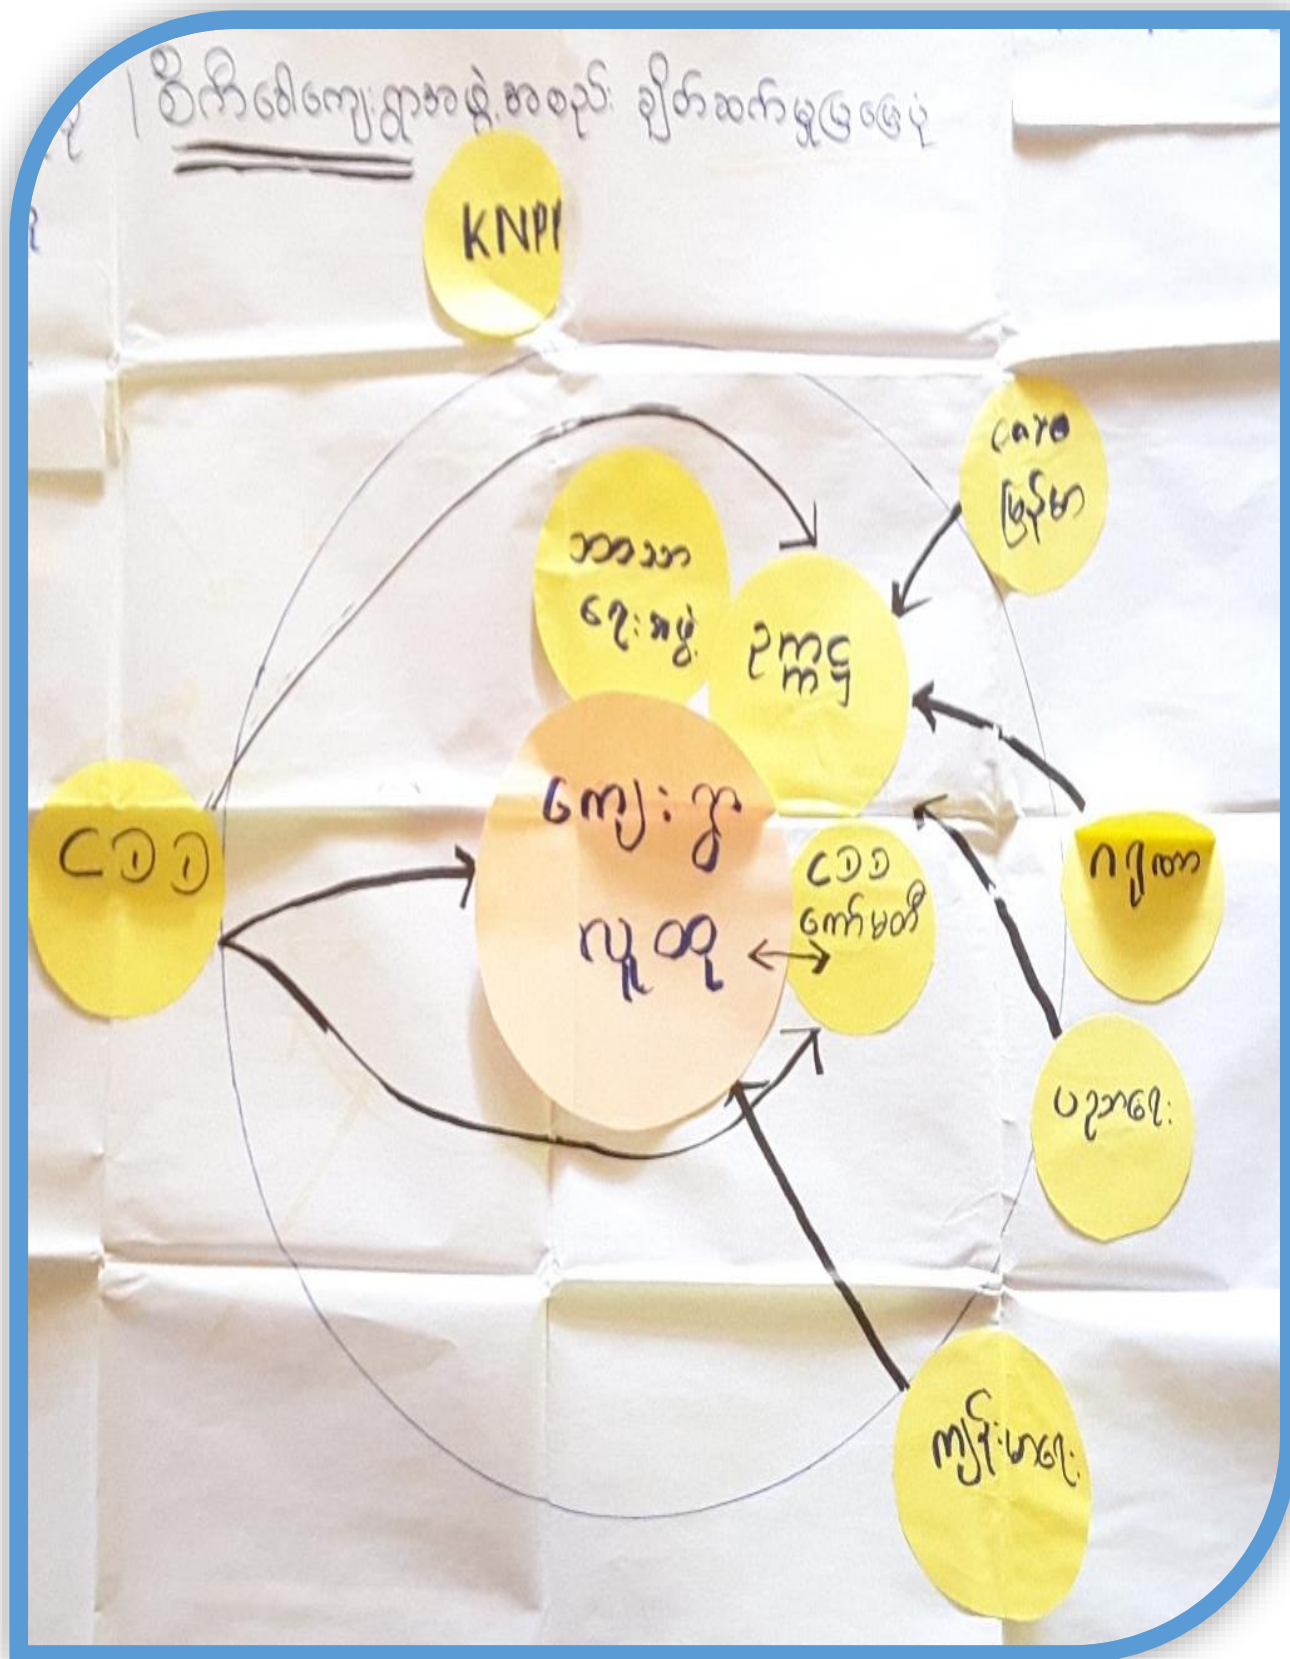 စီကီဒေါကျေးရွာအဖွဲ့အစည်း ချိတ်ဆက်မှုပြမြေပုံ
KNPP
care
မြန်မာ
ဘာသာ
ရေးအဖွဲ့
ဥက္ကဋ္ဌ
ကျေးရွာ
လူထု
CDD
CDD
ကော်မတီ
ဂရုဏာ
ပညာရေး
ကျန်းမာရေး